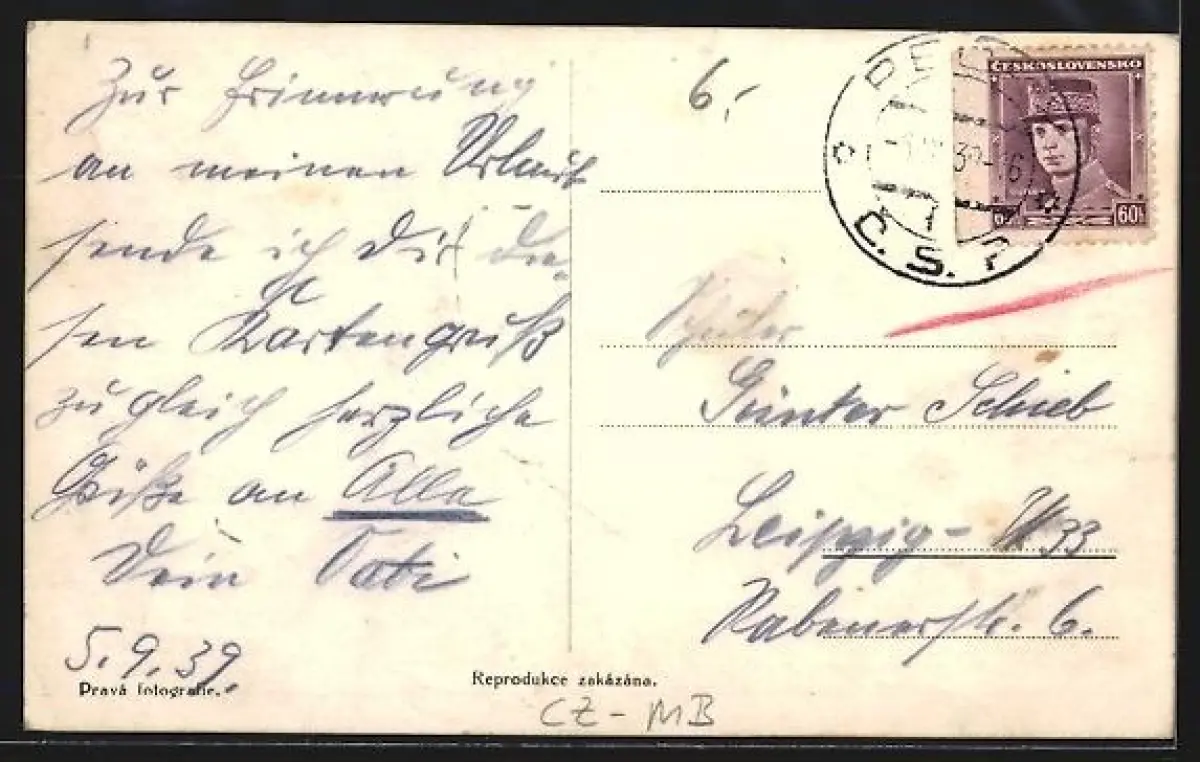 Zur Erinnerung
an meinen Urlaub
sende ich Dir die-
sen Kartengruß
zugleich herzliche
Grüße an Alle
Dein Vati
5.9.39.
Pravá fotografie.
Reprodukce zakázána.
CZ-MB
6,-
ČESKOSLOVENSKO
60h
Č.S.
Schüler
Günter Schieb
Leipzig- 33
Rabenerstr. 6.